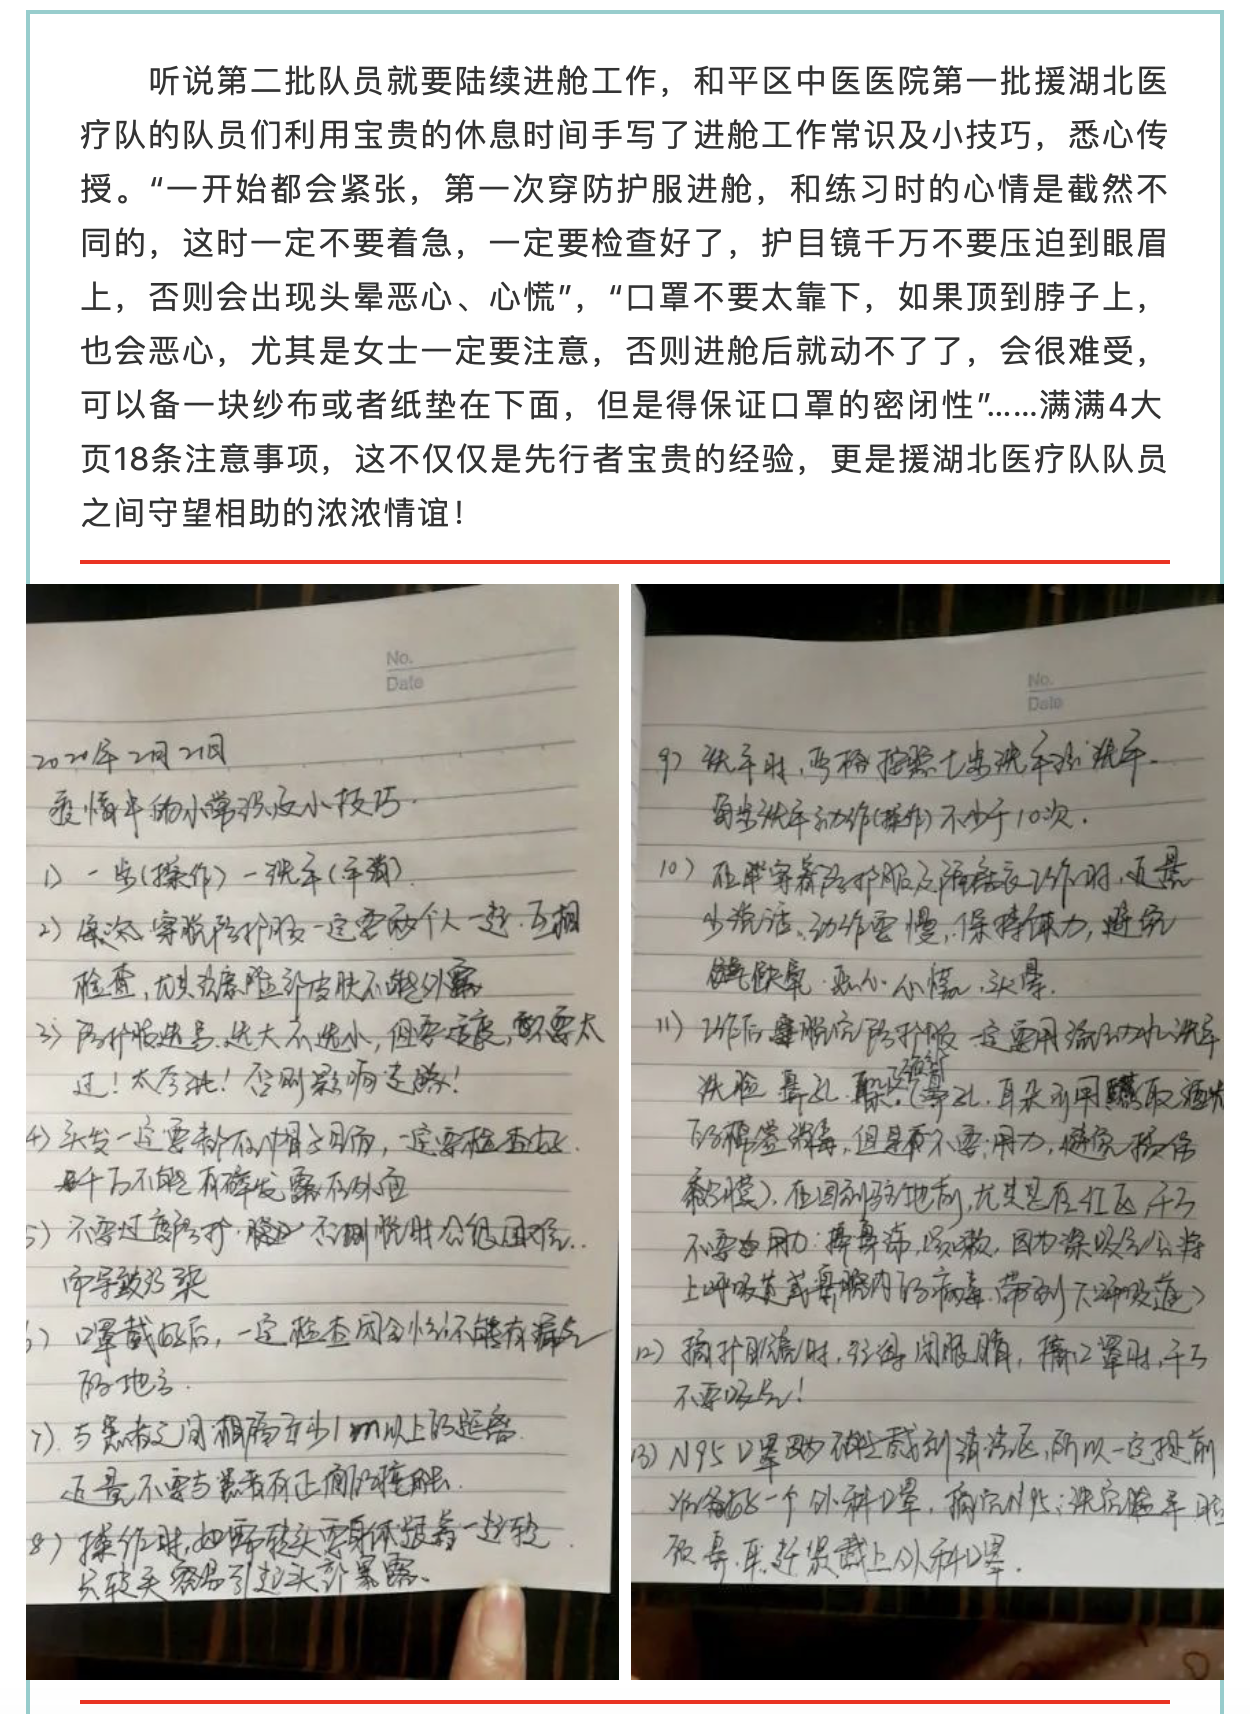 听说第二批队员就要陆续进舱工作，和平区中医医院第一批援湖北医
疗队的队员们利用宝贵的休息时间手写了进舱工作常识及小技巧，悉心传
授。“一开始都会紧张，第一次穿防护服进舱，和练习时的心情是截然不
同的，这时一定不要着急，一定要检查好了，护目镜千万不要压迫到眼眉
上，否则会出现头晕恶心、心慌”，“口罩不要太靠下，如果顶到脖子上，
也会恶心，尤其是女士一定要注意，否则进舱后就动不了了，会很难受，
可以备一块纱布或者纸垫在下面，但是得保证口罩的密闭性”……满满4大
页18条注意事项，这不仅仅是先行者宝贵的经验，更是援湖北医疗队队员
之间守望相助的浓浓情谊！
No.
Date
2020年2月21日
疫情中的小常识及小技巧.
1) 一步(操作)一洗手(手消).
2) 每次穿脱防护服一定要两个人一起.互相
检查,尤其 部皮肤不能外露
3) 防护服选号.选大不选小,但要适度,不要太
过!太 !否则影响走路!
4) 头发一定要都在帽子里面,一定要检查好.
千万不能有碎发露在外面
5) 不要过度防护. 否则脱时会很困难..
而导致污染
6) 口罩戴好后,一定检查闭合性不能有漏气
的地方.
7). 与患者之间相隔至少1m以上的距离.
尽量不要与患者有正面的接触.
8) 操作时,如需转头要身体跟着一起转.
只转头容易引起头部暴露.
No.
Date
9) 洗手时,严格按照七步洗手法洗手.
每步洗手动作(操作)不少于10次.
10) 在舱穿着防护服及隔离衣工作时,尽量
少说话、动作要慢,保持体力,避免
缺氧.恶心.心慌.头晕.
11) 工作后 脱完防护服一定要用流动水洗手
洗脸 鼻孔.耳朵.(鼻孔.耳朵可用 取酒精
的棉签消毒,但是不要用力,避免损伤
黏膜).在回到驻地前,尤其是在红区千万
不要用力:擤鼻涕,咳嗽,因为深吸气会将
上呼吸道或鼻腔内的病毒.带到下呼吸道)
12) 摘护目镜时,紧闭眼睛,摘口罩时,千万
不要吸气!
13) N95口罩因为 戴到清洁区,所以一定提前
准备好一个外科口罩,摘完N95;洗完脸手
鼻.耳.赶紧戴上外科口罩.